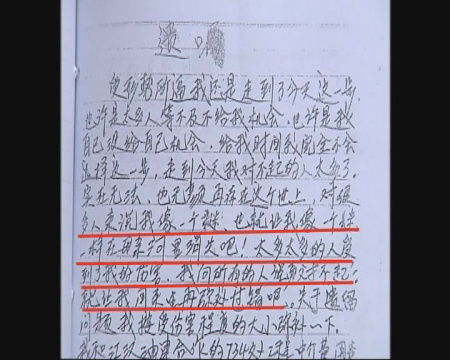 遗嘱
受形势所逼我还是走到了今天这一步,
也许是太多人等不及不给我机会,也许是我
自己没给自己机会,给我时间我完全不会
选择这一步,走到今天我对不起的人太多了。
实在无法,也无颜再存在这个世上,对很
多人来说我像一个谜,也就让我像一个谜
一样在母亲河里消失吧!太多太多的人受
到了我的伤害,我向所有的人说声对不起!
就让我用来生再弥补过错吧。关于遗留
问题,我按受伤害程度的大小弥补一下。